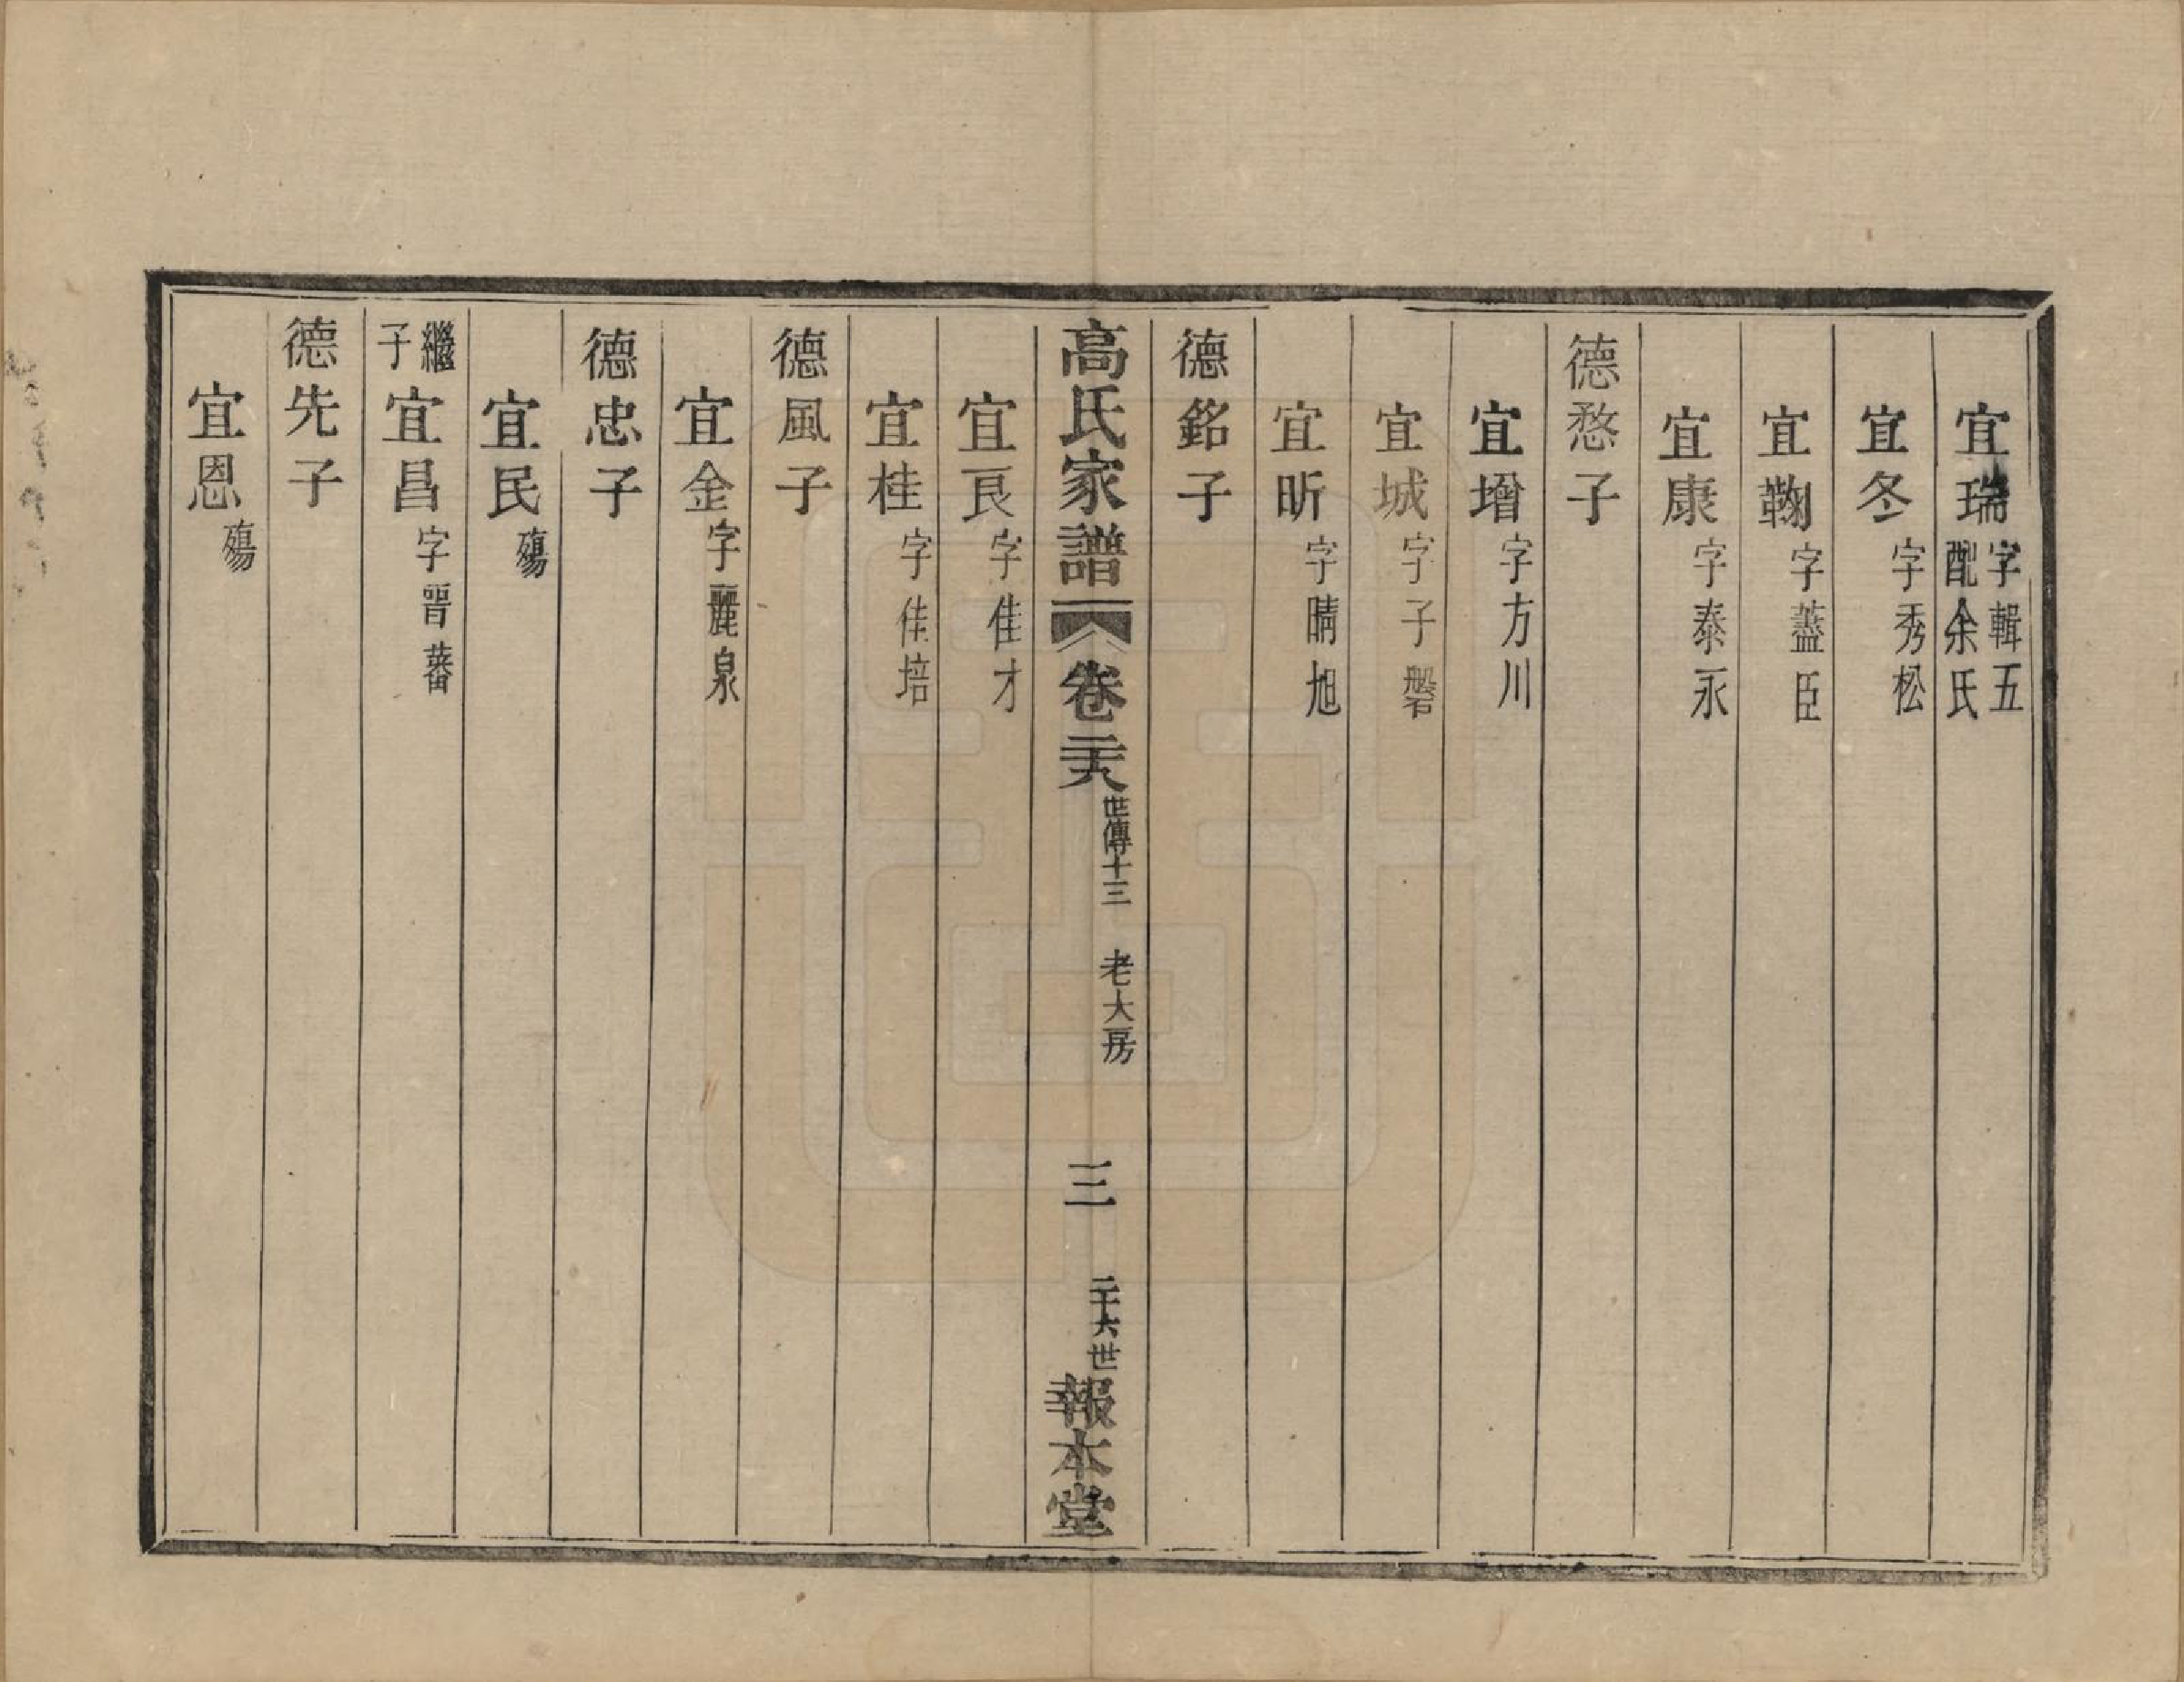 宜瑞字輯五
配余氏
宜冬字秀松
宜鞠字藎臣
宜康字泰永
德愗子
宜增字方川
宜城字子磐
宜昕字晴旭
德銘子
高氏家譜 卷二十八 世傳十三 老大房 三 二十六世 報本堂
宜良字佳才
宜桂字佳培
德風子
宜金字麗泉
德忠子
宜民殤
繼子宜昌字晋蕃
德先子
宜恩殤